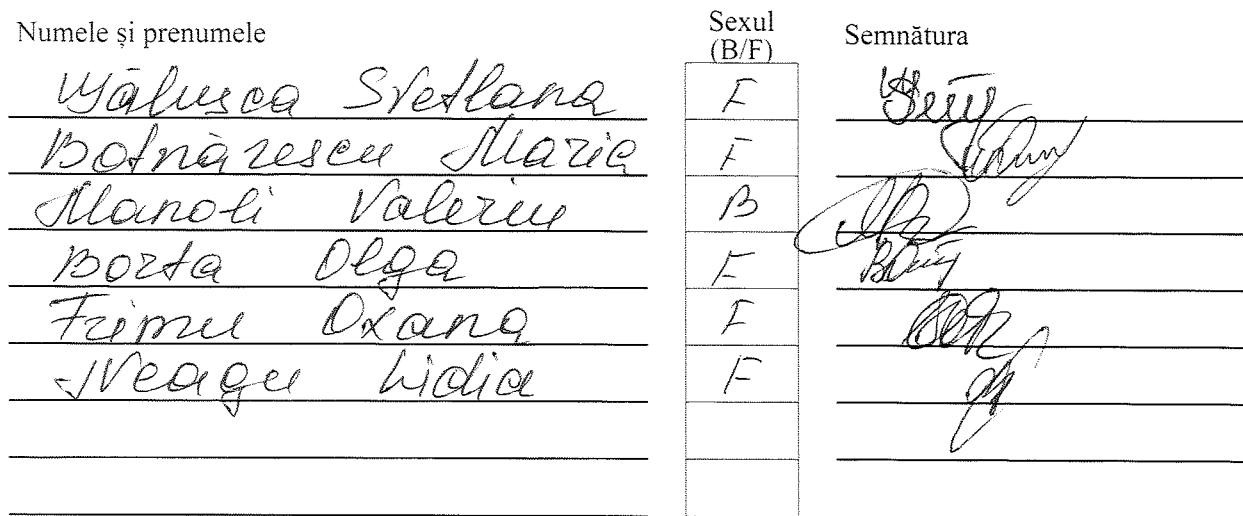 Numele și prenumele Sexul (B/F) Semnătura
Svetlana F
Botnărescu Maria F
Manoli Valeriu B
Borta Olga F
Frimu Oxana F
Neagu Lidia F